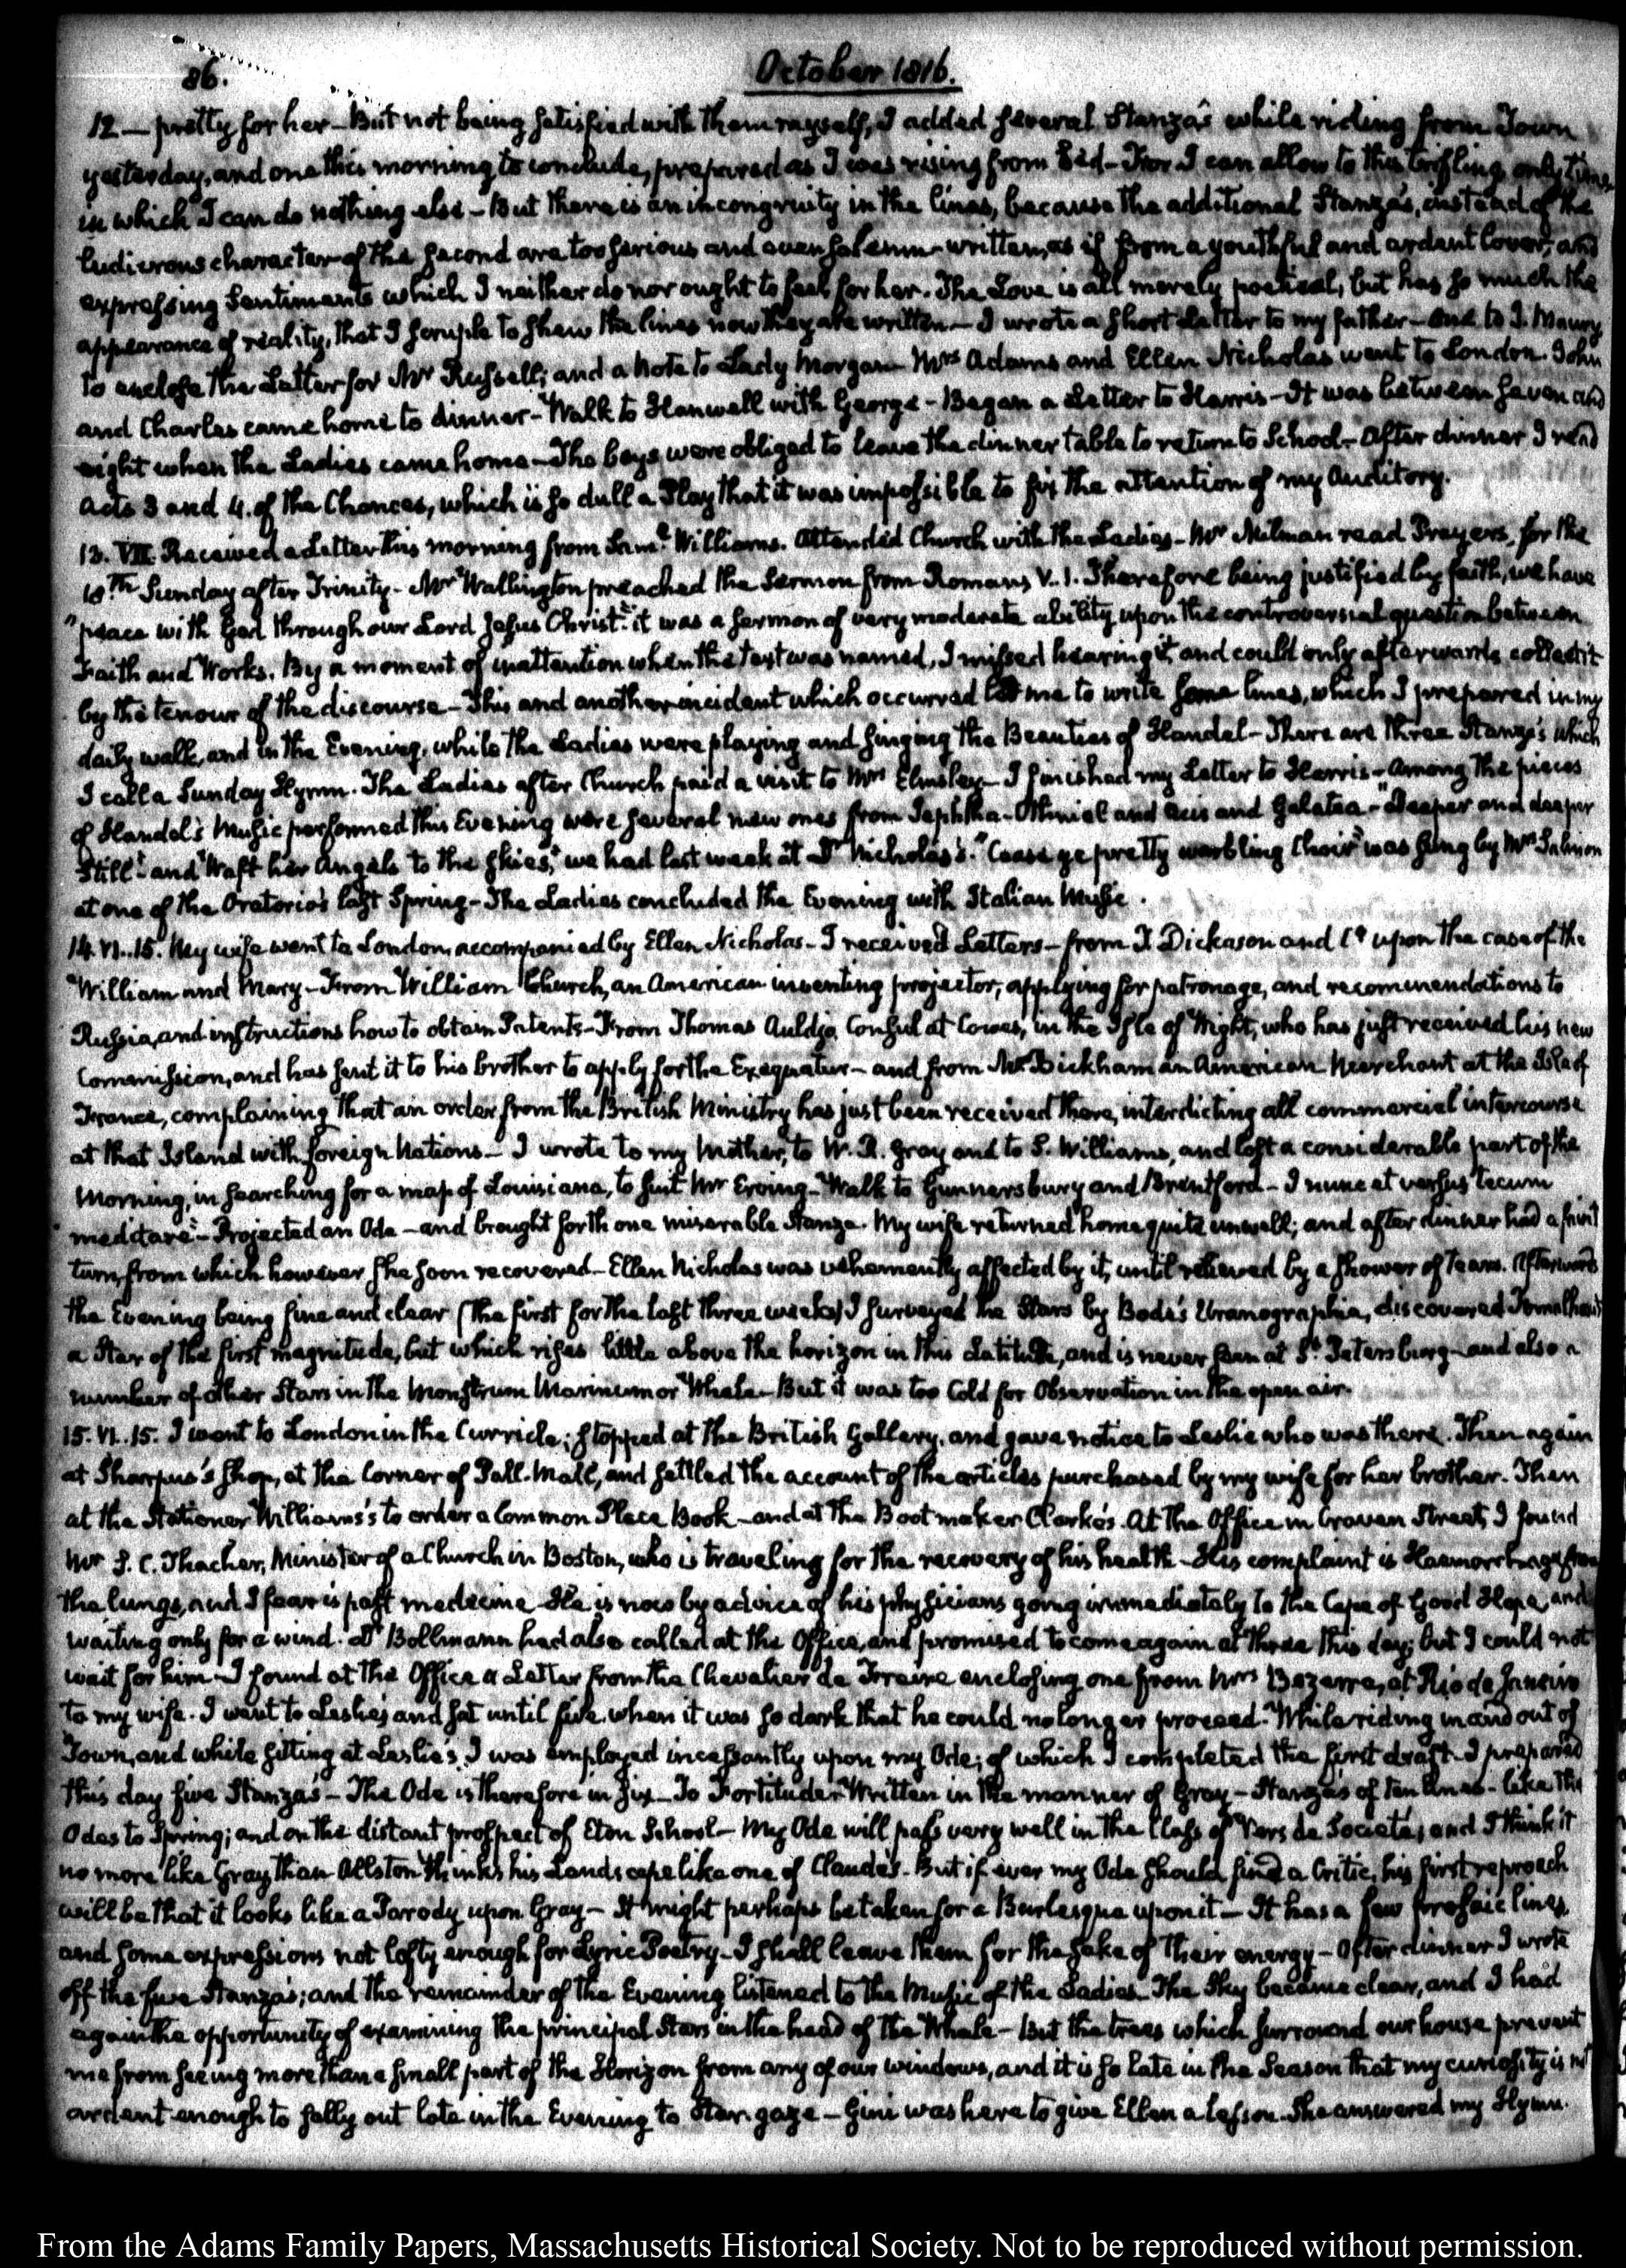 86.
October 1816.
12 — pretty for her — But not being satisfied with them myself, I added several Stanza's while riding from Town
yesterday, and one this morning to conclude, prepared as I was rising from bed — For I can allow to this trifling, only time
in which I can do nothing else — But there is an incongruity in the lines, because the additional Stanza's, instead of the
ludicrous character of the second are too serious and even solemn — written, as if from a youthful and ardent lover, and
expressing sentiments which I neither do nor ought to feel for her. The Love is all merely poetical, but has so much the
appearance of reality, that I scruple to shew the lines now they are written — I wrote a short Letter to my father — one to J. Maury
to enclose the Letter for Mr Russell; and a note to Lady Morgan Mrs Adams and Ellen Nicholas went to London. John
and Charles came home to dinner — Walk to Hanwell with George — Began a Letter to Harris — It was between seven and
eight when the Ladies came home — The boys were obliged to leave the dinner table to return to School — After dinner I read
acts 3 and 4. of the Chances, which is so dull a Play that it was impossible to fix the attention of my Auditory.
13. VII. Received a Letter this morning from Saml. Williams. Attended Church with the Ladies — Mr Milman read Prayers, for the
18th Sunday after Trinity — Mr Wallington preached the Sermon from Romans V. 1. Therefore being justified by faith, we have
"peace with God through our Lord Jesus Christ." it was a sermon of very moderate ability upon the controversial question between
Faith and Works. By a moment of inattention when the text was named, I missed hearing it, and could only afterwards collect it
by the tenour of the discourse — This and another incident which occurred led me to write some lines, which I prepared in my
daily walk, and in the Evening, while the Ladies were playing and singing the Beauties of Handel — There are three Stanza's which
I call a Sunday Hymn. The Ladies after Church paid a visit to Mrs Elmsley — I finished my Letter to Harris — Among the pieces
of Handel's Music performed this Evening were several new ones from Jephtha — Othniel and Acis and Galatea — "Deeper and deeper
still" and "Waft her Angels to the skies," we had last week at Dr Nicholas's. "Cease ye pretty warbling Choir" was sung by Mrs Salmon
at one of the Oratorio's last Spring — The Ladies concluded the Evening with Italian Music.
14. VI..15. My wife went to London, accompanied by Ellen Nicholas — I received Letters — from T. Dickason and Co upon the case of the
William and Mary — From William Church, an American inventing projector, applying for patronage, and recommendations to
Russia, and instructions how to obtain Patents — From Thomas Auldjo, Consul at Cowes, in the Isle of Wight, who has just received his new
Commission, and has sent it to his brother to apply for the Exequatur — and from Mr Bickham an American Merchant at the Isle of
France, complaining that an order from the British Ministry has just been received there, interdicting all commercial intercourse
at that Island with foreign Nations — I wrote to my Mother, to W. R. Gray and to S. Williams, and lost a considerable part of the
Morning, in searching for a map of Louisiana, to suit Mr Erving — Walk to Gunnersbury and Brentford — I nunc et versus tecum
meditare — Projected an Ode — and brought forth one miserable Stanza. My wife returned home quite unwell; and after dinner had a faint
turn, from which however she soon recovered — Ellen Nicholas was vehemently affected by it, until relieved by a shower of tears. Afterwards
the Evening being fine and clear (the first for the last three weeks) I surveyed the Stars by Bode's Uranographia, discovered Fomalhaut
a Star of the first magnitude, but which rises little above the horizon in this Latitude, and is never seen at St. Petersburg — and also a
number of other Stars in the Monstrum Marinum or Whale — But it was too Cold for Observation in the open air.
15. VI..15. I went to London in the Curricle; stopped at the British Gallery, and gave notice to Leslie who was there. Then again
at Sharpus's shop, at the Corner of Pall-Mall, and settled the account of the articles purchased by my wife for her brother. Then
at the Stationer Williams's to order a Common Place Book — and at the Bootmaker Clarke's. At the Office in Craven Street, I found
Mr S. C. Thacher, Minister of a Church in Boston, who is traveling for the recovery of his health — His complaint is Haemorrhage from
the lungs, and I fear is past medicine. He is now by advice of his physicians going immediately to the Cape of Good Hope, and
waiting only for a wind. Dr Bollmann had also called at the Office, and promised to come again at three this day; but I could not
wait for him — I found at the Office a Letter from the Chevalier de Freire enclosing one from Mrs Bezerra, at Rio de Janeiro
to my wife. I went to Leslie's and sat until five, when it was so dark that he could no longer proceed. While riding in and out of
Town, and while sitting at Leslie's I was employed incessantly upon my Ode; of which I completed the first draft — I prepared
this day five Stanza's — The Ode is therefore in six — To Fortitude — Written in the manner of Gray — Stanza's of ten lines — like the
Odes to Spring; and on the distant prospect of Eton School — My Ode will pass very well in the Class of Vers de Societé; and I think it
no more like Gray than Allston thinks his Landscape like one of Claude's. But if ever my Ode should find a Critic, his first reproach
will be that it looks like a Parody upon Gray — It might perhaps be taken for a Burlesque upon it — It has a few prosaic lines,
and some expressions not lofty enough for Lyric Poetry — I shall leave them for the sake of their energy — After dinner I wrote
off the five Stanza's; and the remainder of the Evening listened to the Music of the Ladies. The Sky became clear, and I had
again the opportunity of examining the principal Stars in the head of the Whale — But the trees which surround our house prevent
me from seeing more than a small part of the Horizon from any of our windows, and it is so late in the Season that my curiosity is not
ardent enough to sally out late in the Evening to Star-gaze — Gini was here to give Ellen a lesson. She answered my Hymn.
From the Adams Family Papers, Massachusetts Historical Society. Not to be reproduced without permission.